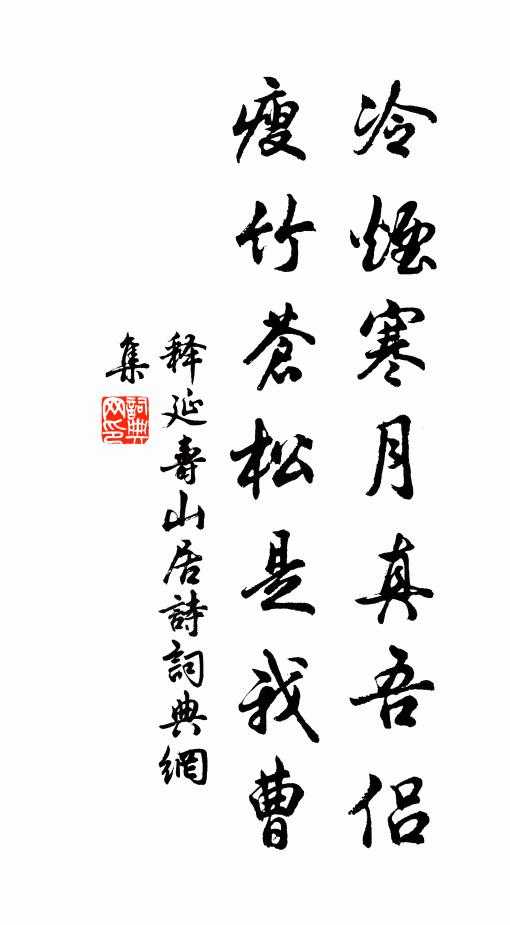 冷煙寒月真吾侶
瘦竹蒼松是我曹
释延壽山居詩詞典網
集
詞典网印